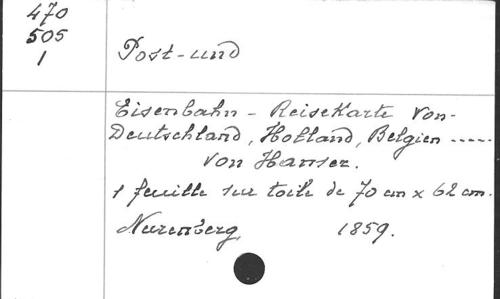 470
505
1
Post-und
Eisenbahn - ReiseKarte von-
Deutschland, Holland, Belgien .....
von Hanser.
1 feuille sur toile de 70 cm x 62 cm.
Nurenberg 1859.